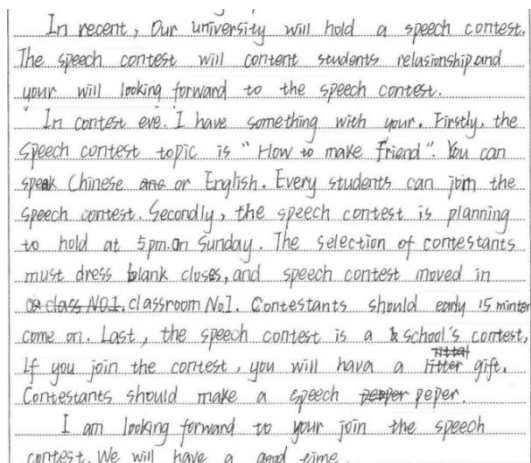 In recent, Our university will hold a speech contest.
The speech contest will content students relasionship and
your will looking forward to the speech contest.
In contest eve. I have something with your. Firstly, the
speech contest topic is "How to make Friend". You can
speak Chinese or English. Every students can join the
speech contest. Secondly, the speech contest is planning
to hold at 5pm.on Sunday. The selection of contestants
must dress blank closes, and speech contest moved in
classroom No1. Contestants should early 15 minter
come on. Last, the speech contest is a school's contest,
If you join the contest, you will hava a gift.
Contestants should make a speech peper.
I am looking forward to your join the speech
contest. We will have a good time.